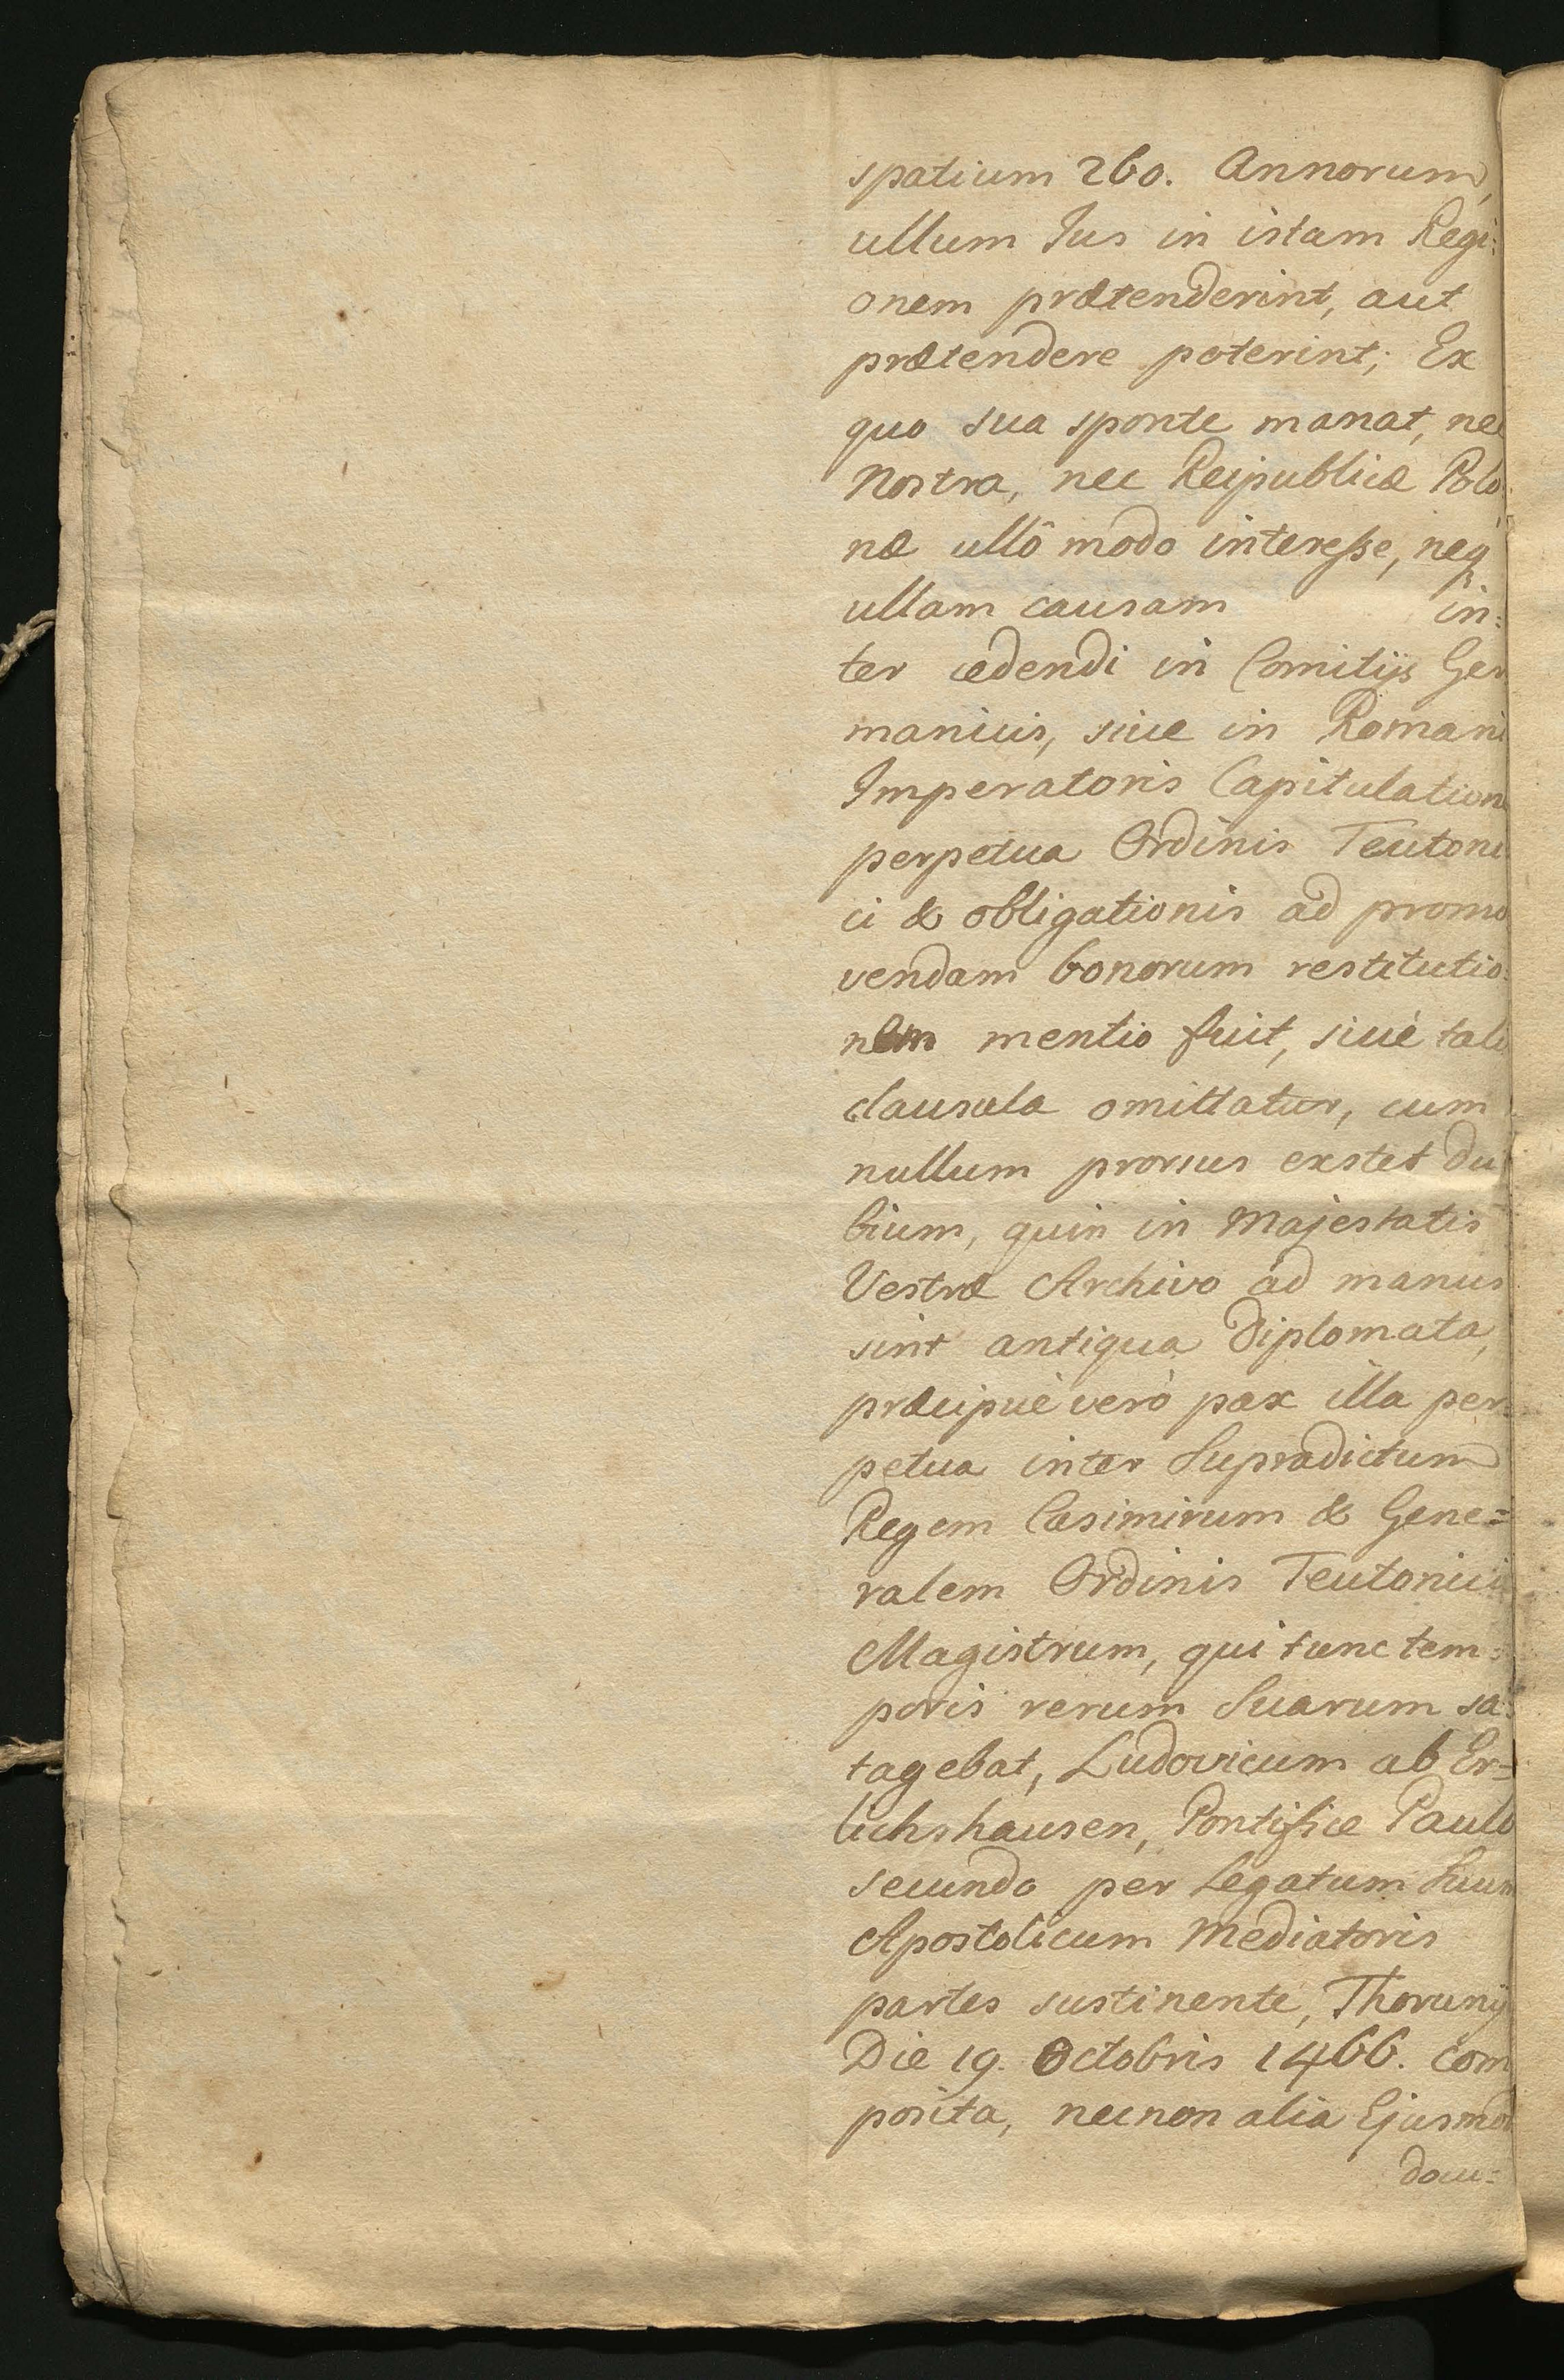 spatium 260. Annorum,
ullum Jus in istam Regi:
onem prætenderint, aut
prætendere poterint; Ex
quo sua sponte manat, nec
Nostra, nec Reipublicæ Polo
næ ullô modo interesse, neq
ullam causam in:
ter cedendi in Comitijs Ger
manicis, sive in Romani
Imperatoris Capitulatione
perpetua Ordinis Teutoni
ci & obligationis ad promo
vendam bonorum restitutio:
nem mentio fuit, sivè talis
clausula omittatur, cum
nullum prorsus exstet du
bium, quin in Majestatis
Vestræ Archivo ad manus
sint antiqua Diplomata,
præcipuè verò pax illa per:
petua inter Supradictum
Regem Casimirum & Gene=
ralem Ordinis Teutonici
Magistrum, qui tunc tem:
poris rerum Suarum sa:
tagebat, Ludovicum ab Er=
lichshausen, Pontifice Paulo
secundo per Legatum Suum
Apostolicum Mediatoris
partes sustinente, Thorunij
Die 19. Octobris 1466. com
posita, necnon alia Ejusmod
docu=